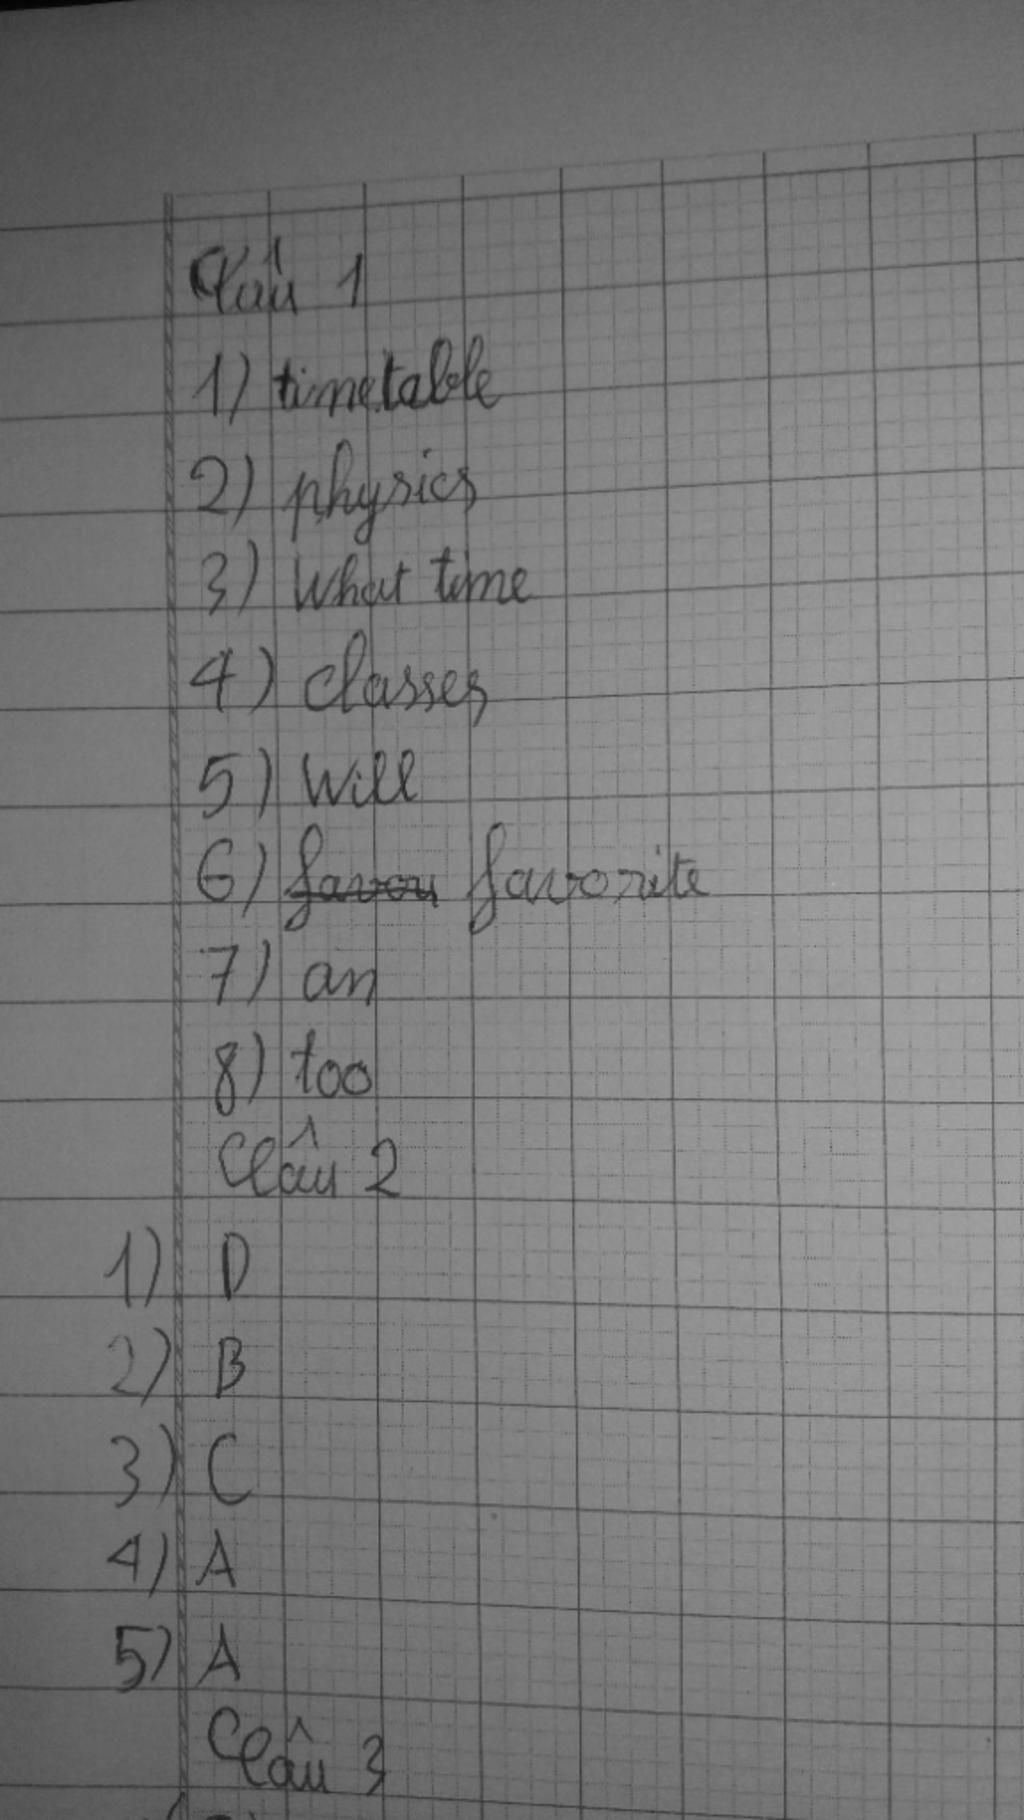 Câu 1
1) timetable
2) physics
3) What time
4) classes
5) Will
6) favou favorite
7) an
8) too
Câu 2
1) D
2) B
3) C
4) A
5) A
Câu 3